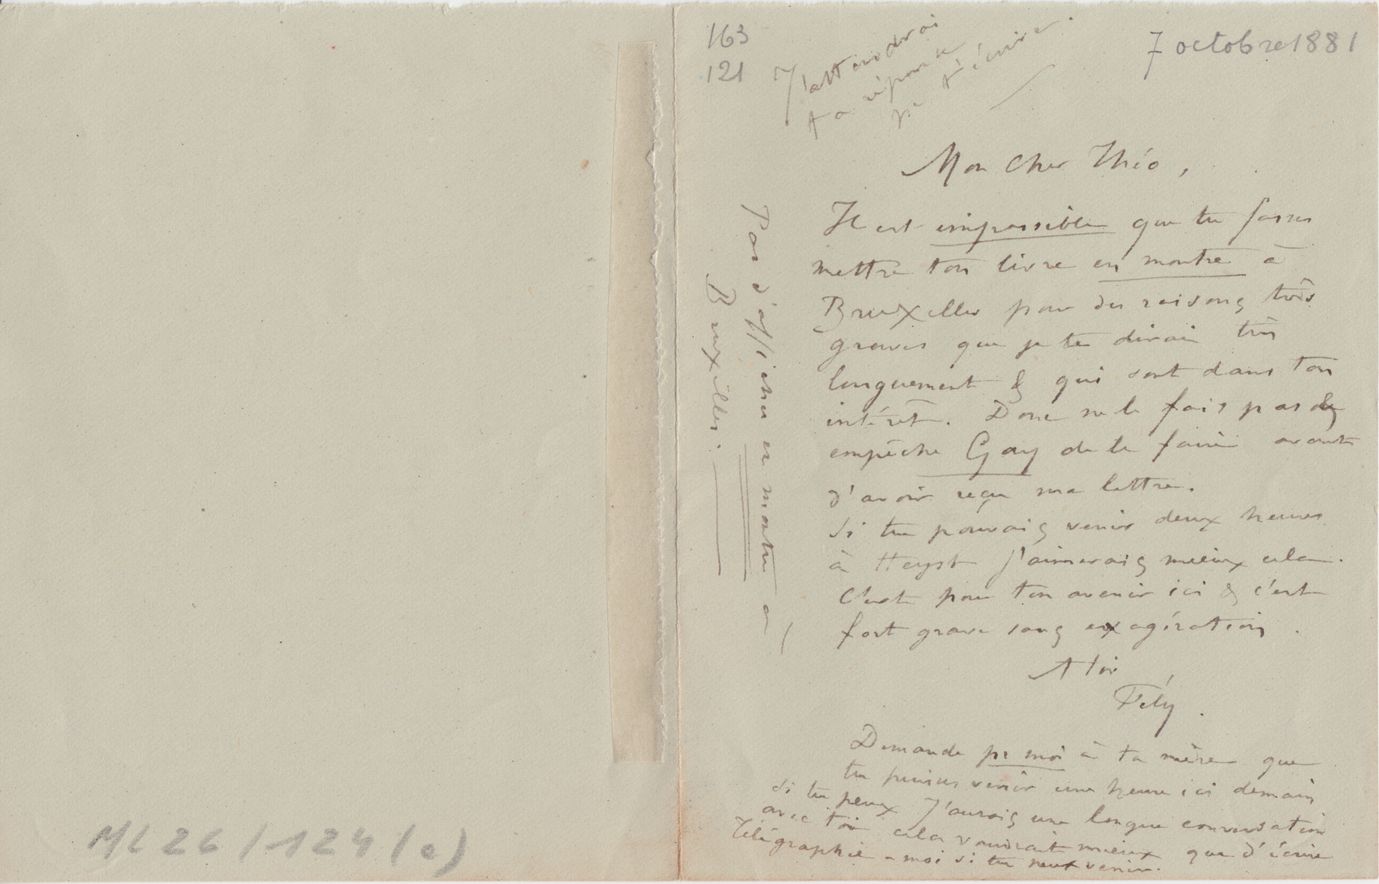 163
121
7 octobre 1881
J'attendrai
ta réponse
pr t'écrire.
Mon cher Théo,
Il est impossible que tu fasses
mettre ton livre en montre à
Bruxelles pour des raisons très
graves que je te dirai très
longuement & qui sont dans ton
intérêt. Donc ne le fais pas &
empêche Gay de le faire avant
d'avoir reçu ma lettre.
Si tu pouvais venir deux heures
à Heyst j'aimerais mieux cela.
C'est pour ton avenir ici & c'est
fort grave sans exagération.
A toi
Fély.
Demande pr moi à ta mère que
tu puisses venir une heure ici demain
si tu peux J'aurais une longue conversation
avec toi cela vaudrait mieux que d'écrire
Télégraphie-moi si tu peux venir.
Pas d'afficher en montre à
Bruxelles.
ML 26/124(e)